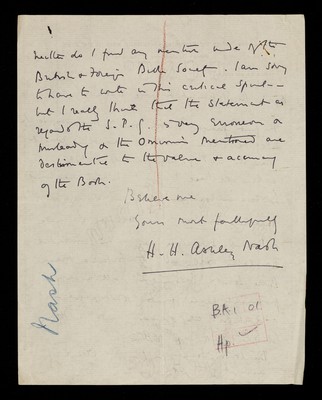 neither do I find any mention made of the
British & Foreign Bible Society. I am sorry
to have to write in this critical spirit —
but I really think that the statement as
regards the S.P.G. is very erroneous or
misleading & the Omissions mentioned are
detrimental to the value & accuracy
of the Book.
Believe me
Yours most faithfully
H. H. Ashley Nash
Nash
B.A. 1 01